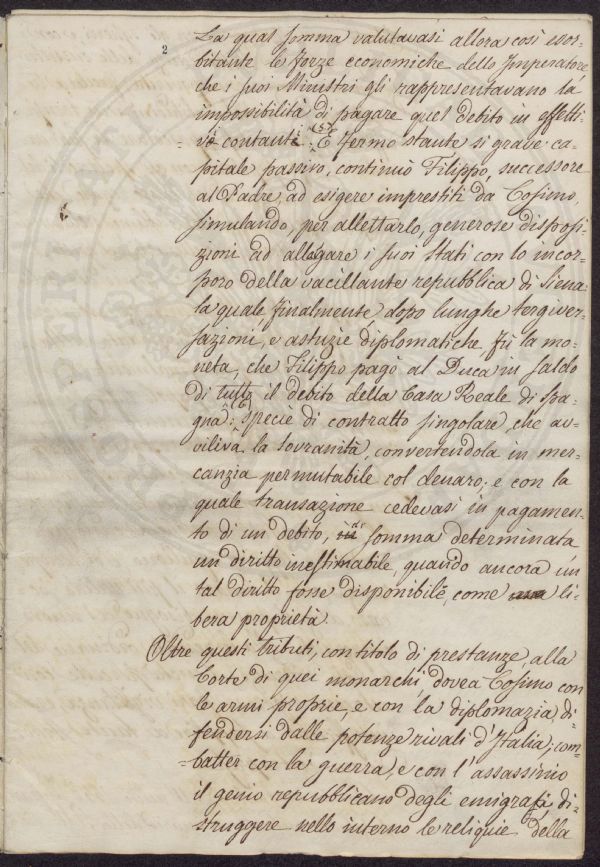 2
La qual somma valutavasi allora così esor-
bitante le forze economiche dello Imperatore
che i suoi Ministri gli rappresentavano la
impossibilità di pagare quel debito in effetti-
vo contante. (5) E fermo stante si grave ca-
pitale passivo, continuò Filippo, successore
al Padre, ad esigere imprestiti da Cosimo,
simulando, per allettarlo, generose disposi-
zioni ad allagare i suoi Stati con lo incor-
poro della vacillante repubblica di Siena:
la quale finalmente, dopo lunghe tergiver-
sazioni, e astuzie diplomatiche, fù la mo-
neta, che Filippo pagò al Duca in saldo
di tutto il debito della Casa Reale di Spa-
gna: (6) specie di contratto singolare, che av-
viliva la Sovranità, convertendola in mer-
canzia permutabile col denaro; e con la
quale transazione cedevasi in pagamen-
to di un debito, di somma determinata
un diritto inestimabile, quando ancora un
tal diritto fosse disponibile, come li-
bera proprietà.
Oltre questi tributi, con titolo di prestanze, alla
Corte di quei monarchi dovea Cosimo con
le armi proprie, e con la diplomazia di-
fendersi dalle potenze rivali d'Italia; com-
batter con la guerra, e con l'assassinio
il genio repubblicano degli emigrati di-
struggere nello interno le reliquie della